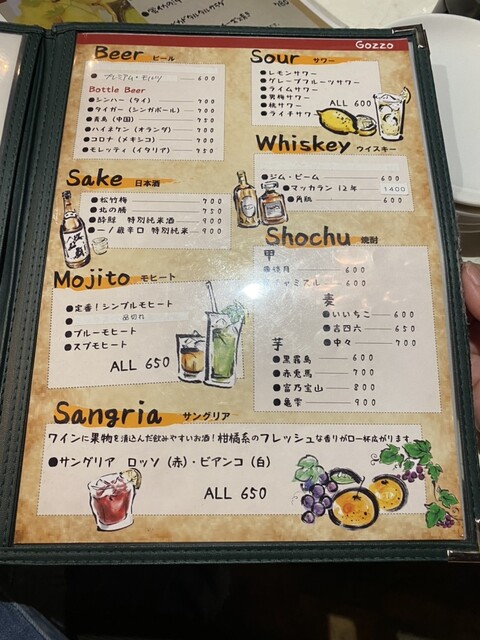 Gozzo
Beer ビール
プレミアム・モルツ 600
Bottle Beer
●シンハー (タイ) 700
●タイガー (シンガポール) 700
●青島 (中国) 750
●ハイネケン (オランダ) 700
●コロナ (メキシコ) 700
●モレッティ (イタリア) 750
Sour サワー
●レモンサワー
●グレープフルーツサワー
●ライムサワー
●男梅サワー
●桃サワー
●ライチサワー
ALL 600
Whiskey ウイスキー
●ジム・ビーム 600
●マッカラン 12年 1400
●角瓶 600
Sake 日本酒
●松竹梅 700
●北の勝 750
●酔鯨 特別純米酒 900
●一ノ蔵辛口 特別純米 900
Shochu 焼酎
甲
600
600
麦
●いいちこ 600
●吉四六 650
●中々 700
芋
●黒霧島 600
●赤兎馬 700
●富乃宝山 800
●亀雫 900
Mojito モヒート
●定番!シンプルモヒート
● 品切れ
●ブルーモヒート
●スプモヒート
ALL 650
Sangria サングリア
ワインに果物を漬込んだ飲みやすいお酒!柑橘系のフレッシュな香りが口一杯広がります
●サングリア ロッソ (赤)・ビアンコ (白)
ALL 650